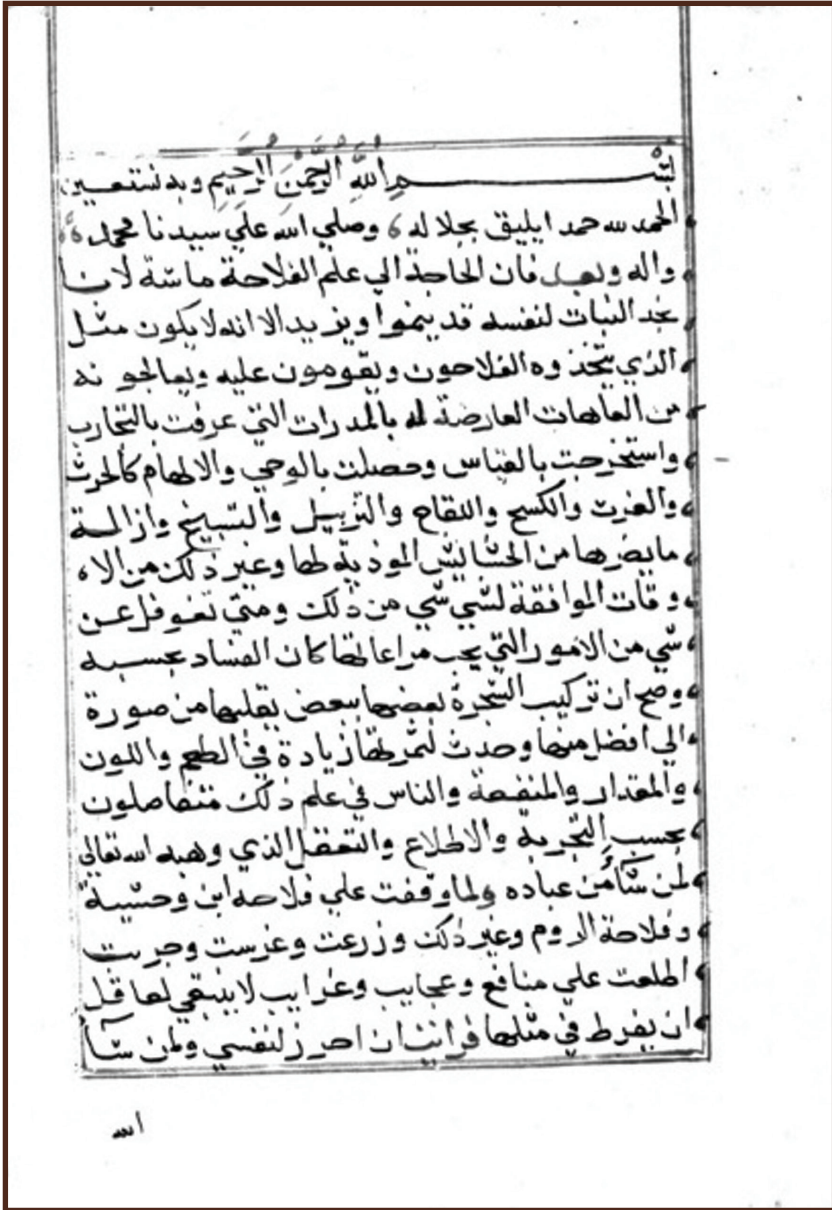 بســـــم الله الرحمن الرحيم وبه نستعين
الحمد لله حمدا يليق بجلاله وصلي الله علي سيدنا محمد
واله وبعد فان الحاجة الي علم الفلاحة ماسة لانا
نجد النبات لنفسه قد ينموا ويزيد الا انه لا يكون مثل
الذي يتخذوه الفلاحون ويقومون عليه ويعالجونه
من العاهات العارضة له بالمدرات التي عرفت بالتجارب
واستخرجت بالقياس وحصلت بالوحي والالهام كالحرث
والغرس والكسح واللقاح والتزبيل والتسبيخ وازالة
ما يضرها من الحشايش الموذية لها وغير ذلك من الا
وقات الموافقة لشي شي من ذلك ومتي تغوفل عن
شي من الامور التي يجب مراعاتها كان الفساد بحسبه
وصح ان تركيب الشجرة بعضها ببعض يقلبها من صورة
الي افضل منها وحدث لثمرتها زيادة في الطعم واللون
والمقدار والمنفعة والناس في علم ذلك متفاضلون
بحسب التجربة والاطلاع والتعقل الذي وهبه الله تعالي
لمن شآ من عباده ولما وقفت علي فلاحة ابن وحشية
وفلاحة الروم وغير ذلك وزرعت وغرست وجربت
اطلعت علي منافع وعجايب وغرايب لا ينبغي لعاقل
ان يفرط في مثلها فرايت ان احرز لنفسي ولمن شآ
الله